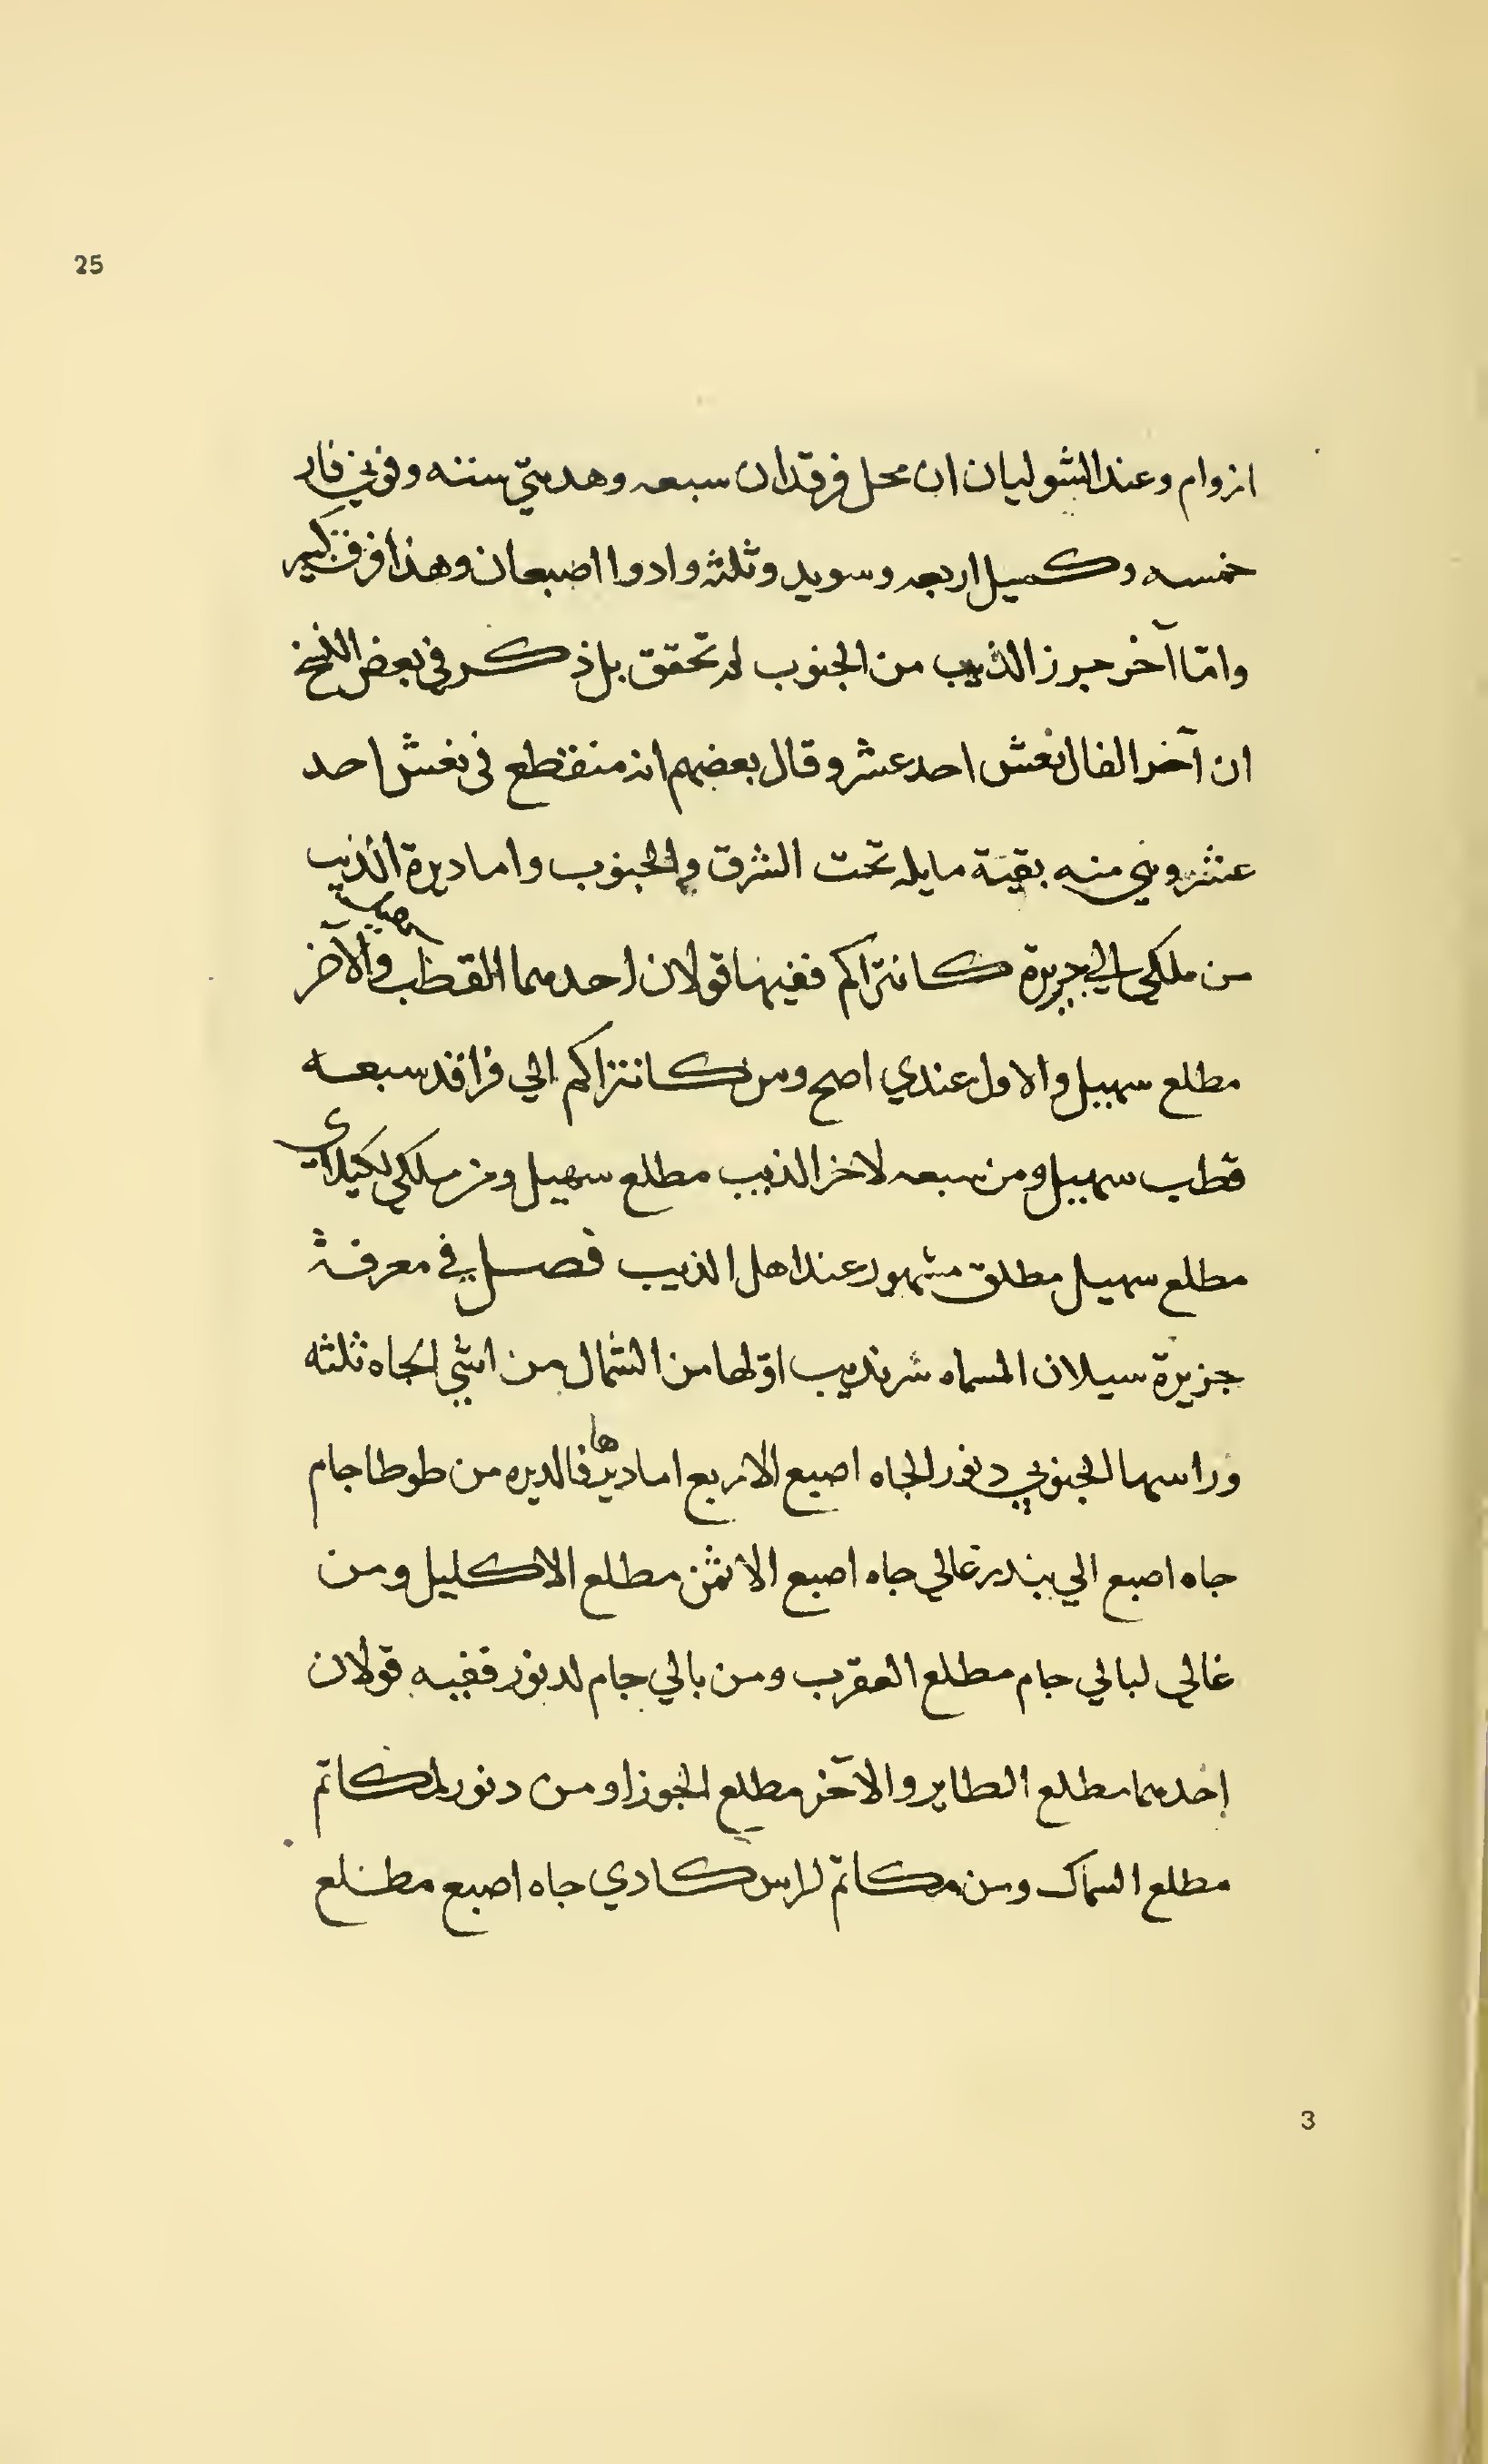 25
ازوام وعند الشوليان ان محل فرقدان سبعه وهدمتي سته وفوبي فار
خمسه وكميل اربعه وسويد وثلثه وادوا اصبعان وهذا فرق كبير
وامّا آخر جرز الذيب من الجنوب لم تحقق بل ذكر في بعض النسخ
ان آخر الفال نعش احد عشر وقال بعضهم انه منقطع في نعش احد
عشر وبقي منه بقية مايله تحت الشرق والجنوب واما ديرة الذيب
من ملكي الي جزيرة كانتراكم ففيها قولان احدهما القطب والآخر
مطلع سهيل والاول عندي اصح ومن كانتراكم الي فراقد سبعه
قطب سهيل ومن سبعه لاخر الذيب مطلع سهيل ومن ملكي
مطلع سهيل مطلق مشهور عند اهل الذيب فصل في معرفة
جزيرة سيلان المسماه سرنديب اوّلها من الشمال من اثني الجاه ثلثه
وراسها الجنوبي دنور الجاه اصبع الا ربع اما ديرها فالديره من طوطاجام
جاه اصبع الي بندر غالي جاه اصبع الا ثمن مطلع الاكليل ومن
غالي لبالي جام مطلع العقرب ومن بالي جام لدنور ففيه قولان
احدهما مطلع الطاير والآخر مطلع الجوزا ومن دنور لمكاتم
مطلع السماك ومن مكاتم لراس كادي جاه اصبع مطلع
3